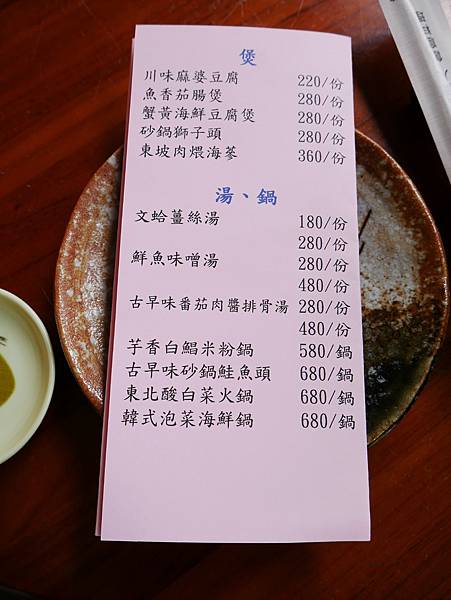 煲
川味麻婆豆腐 220/份
魚香茄腸煲 280/份
蟹黃海鮮豆腐煲 280/份
砂鍋獅子頭 280/份
東坡肉煨海蔘 360/份
湯、鍋
文蛤薑絲湯 180/份
280/份
鮮魚味噌湯 280/份
480/份
古早味番茄肉醬排骨湯 280/份
480/份
芋香白鯧米粉鍋 580/鍋
古早味砂鍋鮭魚頭 680/鍋
東北酸白菜火鍋 680/鍋
韓式泡菜海鮮鍋 680/鍋